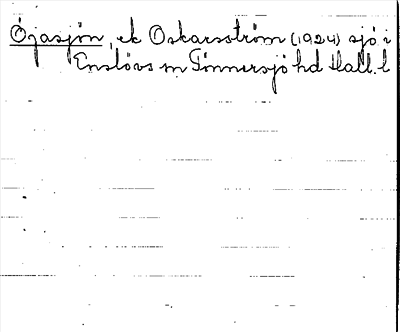 Öjasjön, ek Oskarsström (1924) sjö i
Enslövs sn Tönnersjö hd Hall. l